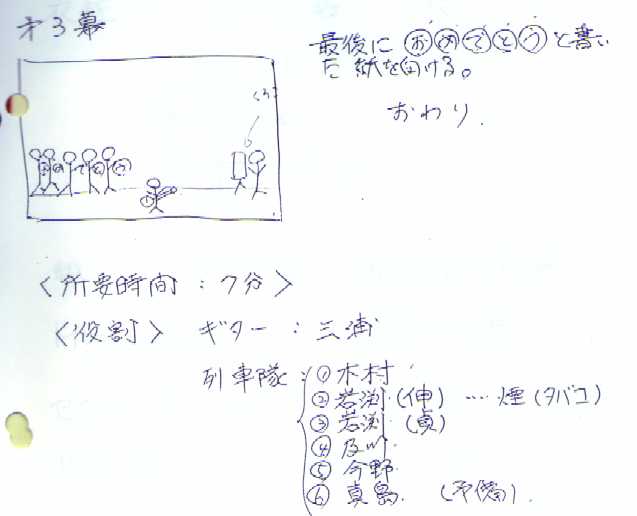 第3幕
最後に おめでとう と書い
た紙を向ける。
おわり.
<所要時間：7分>
<役割> ギター：三浦
列車隊：① 木村
② 若渕 (伸) … 煙 (タバコ)
③ 若渕 (貞)
④ 及川
⑤ 今野
⑥ 真島. (予備).